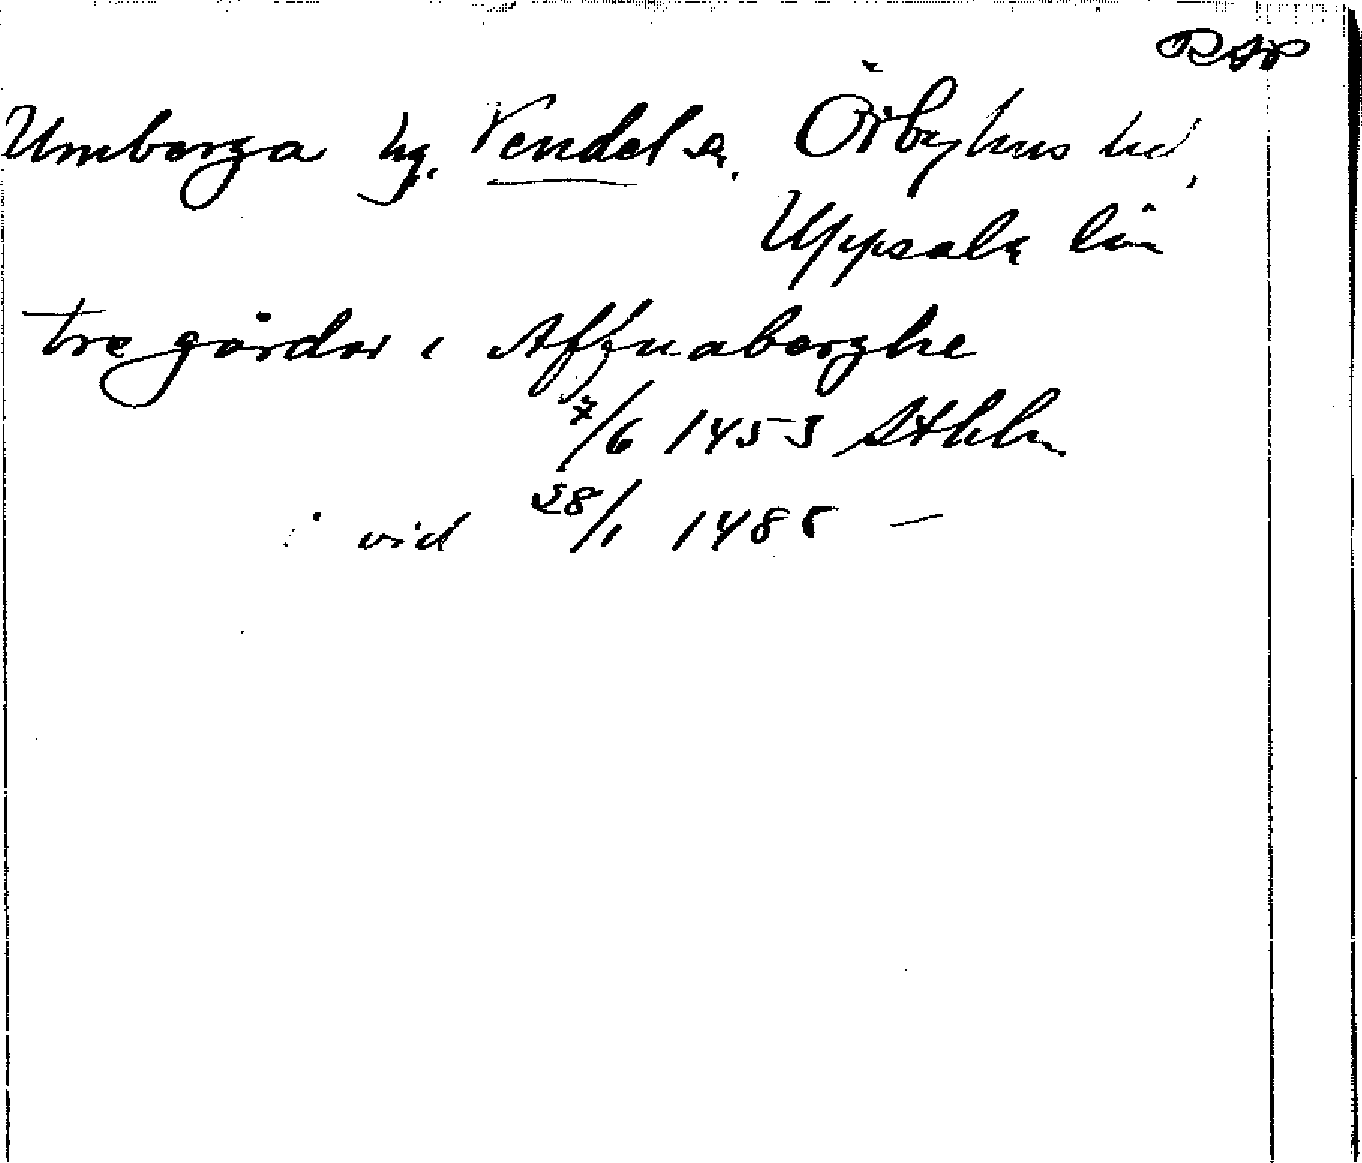 RAP
Umberga by. Vendel sn. Örbyhus hd,
Uppsala län
tre gårdar i Affnaberghe
7/6 1453 Sthlm
i vid 28/1 1485 —